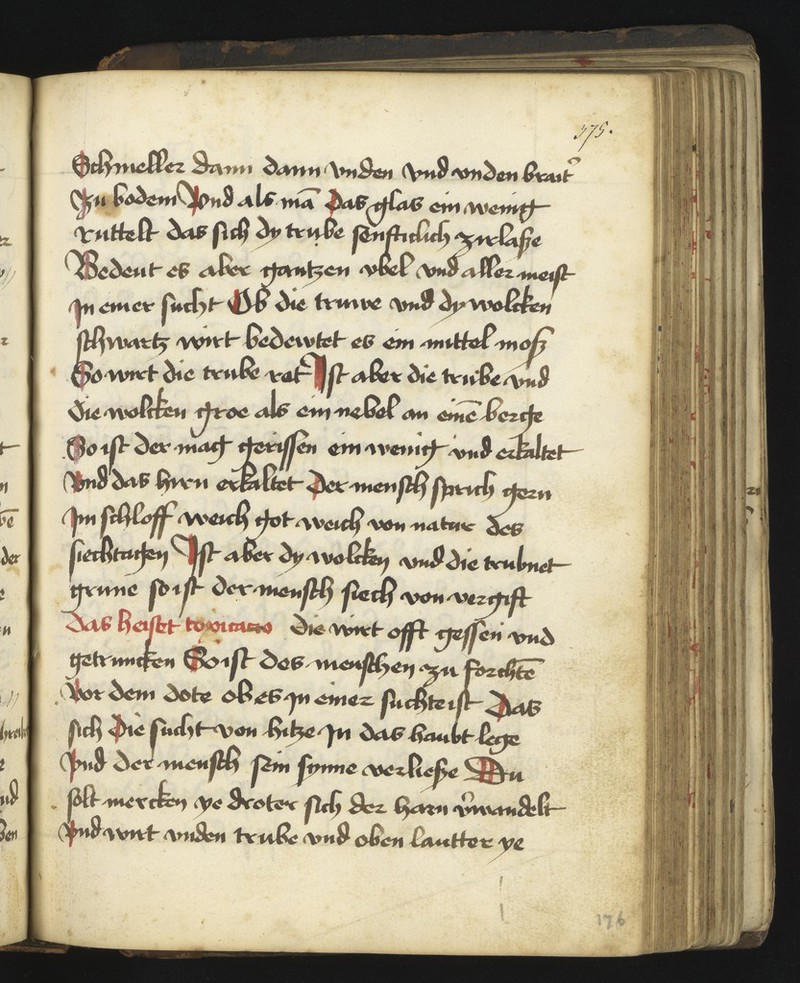 375.
Schmeller dann dann vnden vnd vnden brait᷑
Zu bodem Vnd als mā Das glas ein wenig
ruttelt das sich dy trube senfticlich zirlaße
Bedeut es aber gantzen vbel vnd aller meist
In einer sucht Ob die truwe vnd dy wolcken
schwartz wirt bedewtet es ein mittel moß
So wirt die trube rot Ist aber die trube vnd
die wolcken groe als ein nebel an einē berge
So ist der mag gerissen ein wenig vnd erkaltet
Vnd das hirn erkaltet Der mensch sprich gern
Im schloff weich got weich von natur des
siechtagen Ist aber dy wolcken vnd die trubnet
grune so ist der mensch siech von vergift
das heiset die wirt offt gessen vnd
getruncken So ist des menschen zu forchtē
Vor dem dote ob es In einer suchte ist Das
sich Die sucht von hitze In das haubt lege
Vnd der mensch sein synne verließe Du
solt mercken ye droter sich der harn v̄wandelt
Vnd wirt vnden trube vnd oben lautter ye
176